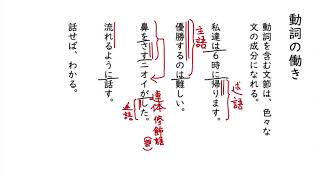 動詞の働き
動詞を含む文節は、色々な
文の成分になれる。
私達は6時に帰ります。
述語
優勝するのは難しい。
主語
鼻をさすニオイがした。
連体修飾語(部)
述語
流れるように話す。
話せば、わかる。